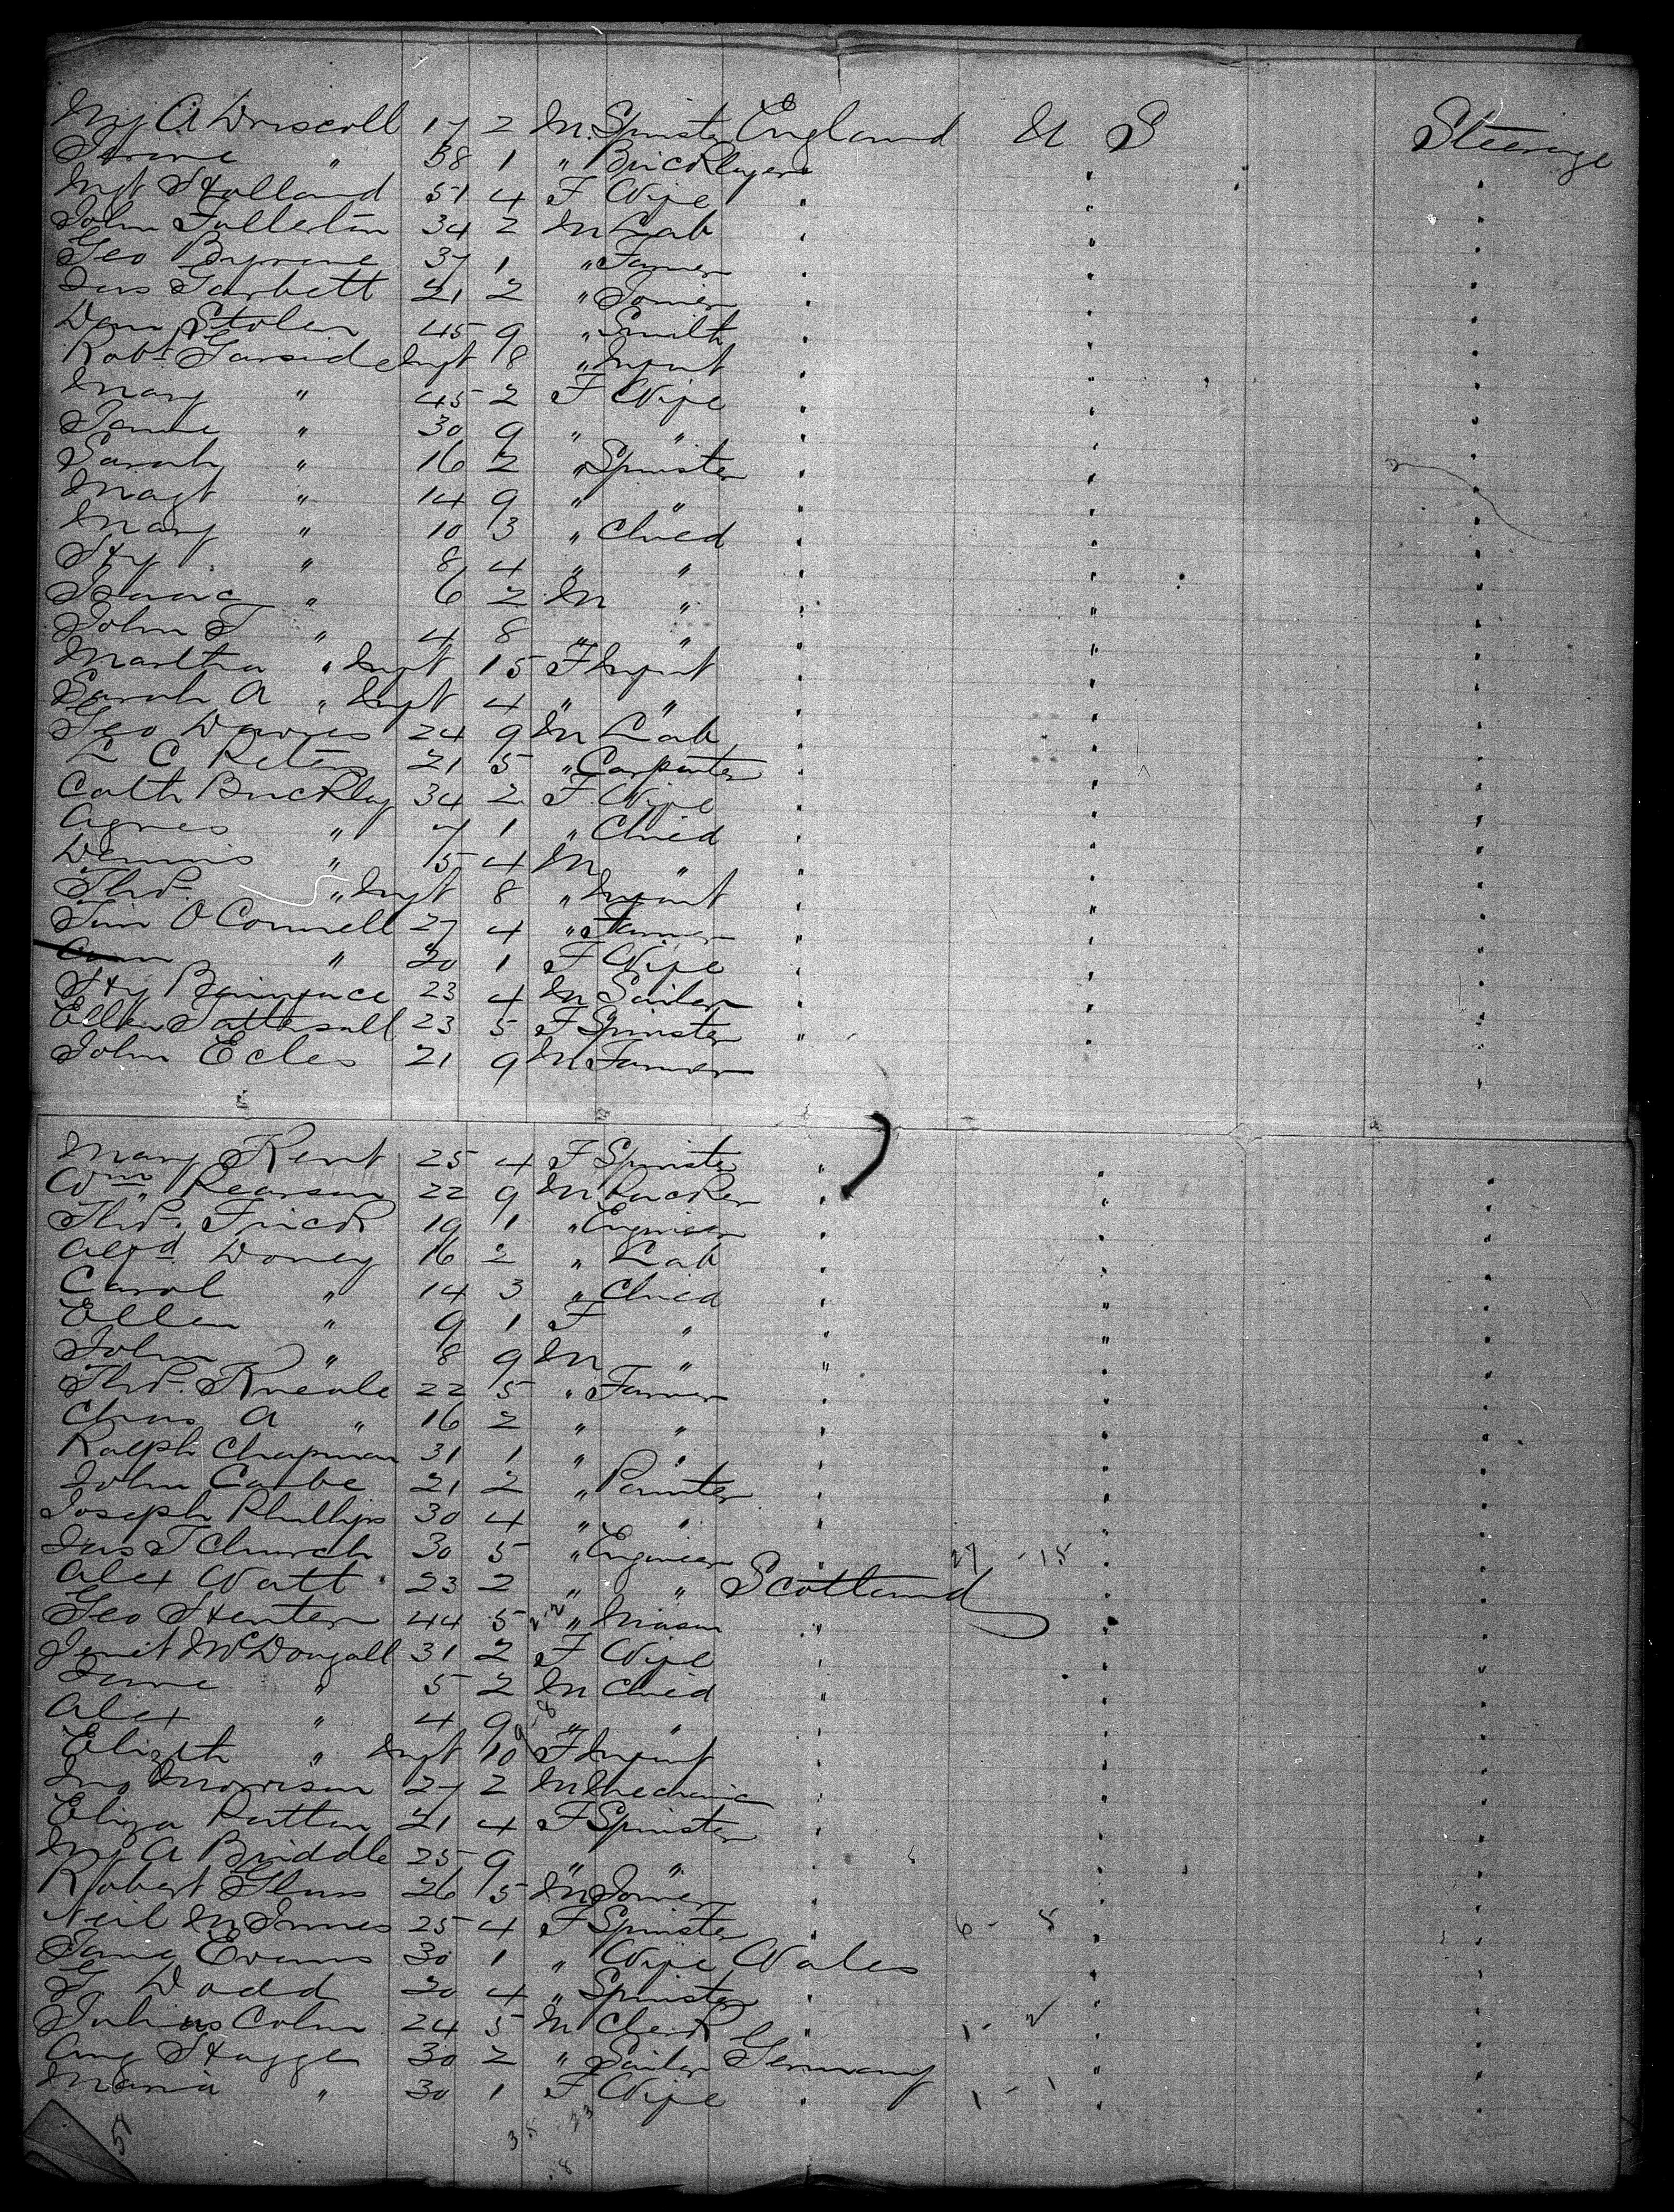 Mgt A Driscoll 17 2 M. Spinster England U S Steerage
" 38 1 " Bricklayer " " "
Mgt Holland 51 4 F Wife " " "
John Fullerton 34 2 M Lab " " "
Geo Byrone 37 1 " Farmer " " "
Jas Garbett 21 2 " Joiner " " "
Dan Stolen 45 9 " Smith " " "
Robt Garside Inft 8 " Infant " " "
Mary " 45 2 F Wife " " "
" 30 9 " " " " "
Sarah " 16 2 " Spinster " " "
Magt " 14 9 " " " " "
Mary " 10 3 " Child " " "
Hy " 8 4 " " " " "
Isaac " 6 2 M " " " "
John T " 4 8 " " " " "
Martha " Inft 15 F Infant " " "
Sarah A " Inft 4 " " " " "
Geo Davies 24 9 M Lab " " "
L C Peters 21 5 " Carpenter " " "
Cath Buckley 34 2 F Wife " " "
Agnes " 7 1 " Child " " "
Dennis " 5 4 M " " " "
Thos. " Inft 8 " Infant " " "
Tim O Connell 27 4 " Farmer " " "
Ann " 20 1 F Wife " " "
Hy 23 4 M Sailor " " "
Ellen Tattersall 23 5 F Spinster " " "
John Ecles 21 9 M Farmer "
Mary Kent 25 4 F Spinster " " "
Wm Pearson 22 9 M Packer " " "
Thos. Frick 19 1 " Engineer " " "
Alfd Doney 16 2 " Lab " " "
Carol " 14 3 " Child " " "
Ellen " 9 1 F " " " "
John " 8 9 M " " " "
Thos. Kneale 22 5 " Farmer " " "
Chas A " 16 2 " " " " "
Ralph Chapman 31 1 " " " " "
John Carbe 21 2 " Painter " " "
Joseph Phillips 30 4 " " " " "
Jas T Church 30 5 " Engineer " 27 - 15 " "
Alex Watt 23 2 " " Scotland " "
Geo Henter 44 5 " Mason " " "
Jenet McDougall 31 2 F Wife " " "
Jane " 5 2 M Child " " "
Alex " 4 9 " " " " "
Elizth " Inft 10 F Infant " " "
Jno Morrison 27 2 M Mechanic " " "
Eliza Patton 21 4 F Spinster " " "
Mgt A Briddle 25 9 " " " " "
Robert Glass 26 5 M Joiner " " "
Neil McInnes 25 4 F Spinster " 6 - 5 " "
Jane Evans 30 1 " Wife Wales " "
G Dodd 20 4 " Spinster " " "
Julius Cohn 24 5 M Clerk " 1 - 2 " "
Aug Hagge 30 2 " Sailor Germany " "
Maria " 30 1 F Wife " 1 - 1 " "
35 - 23
51